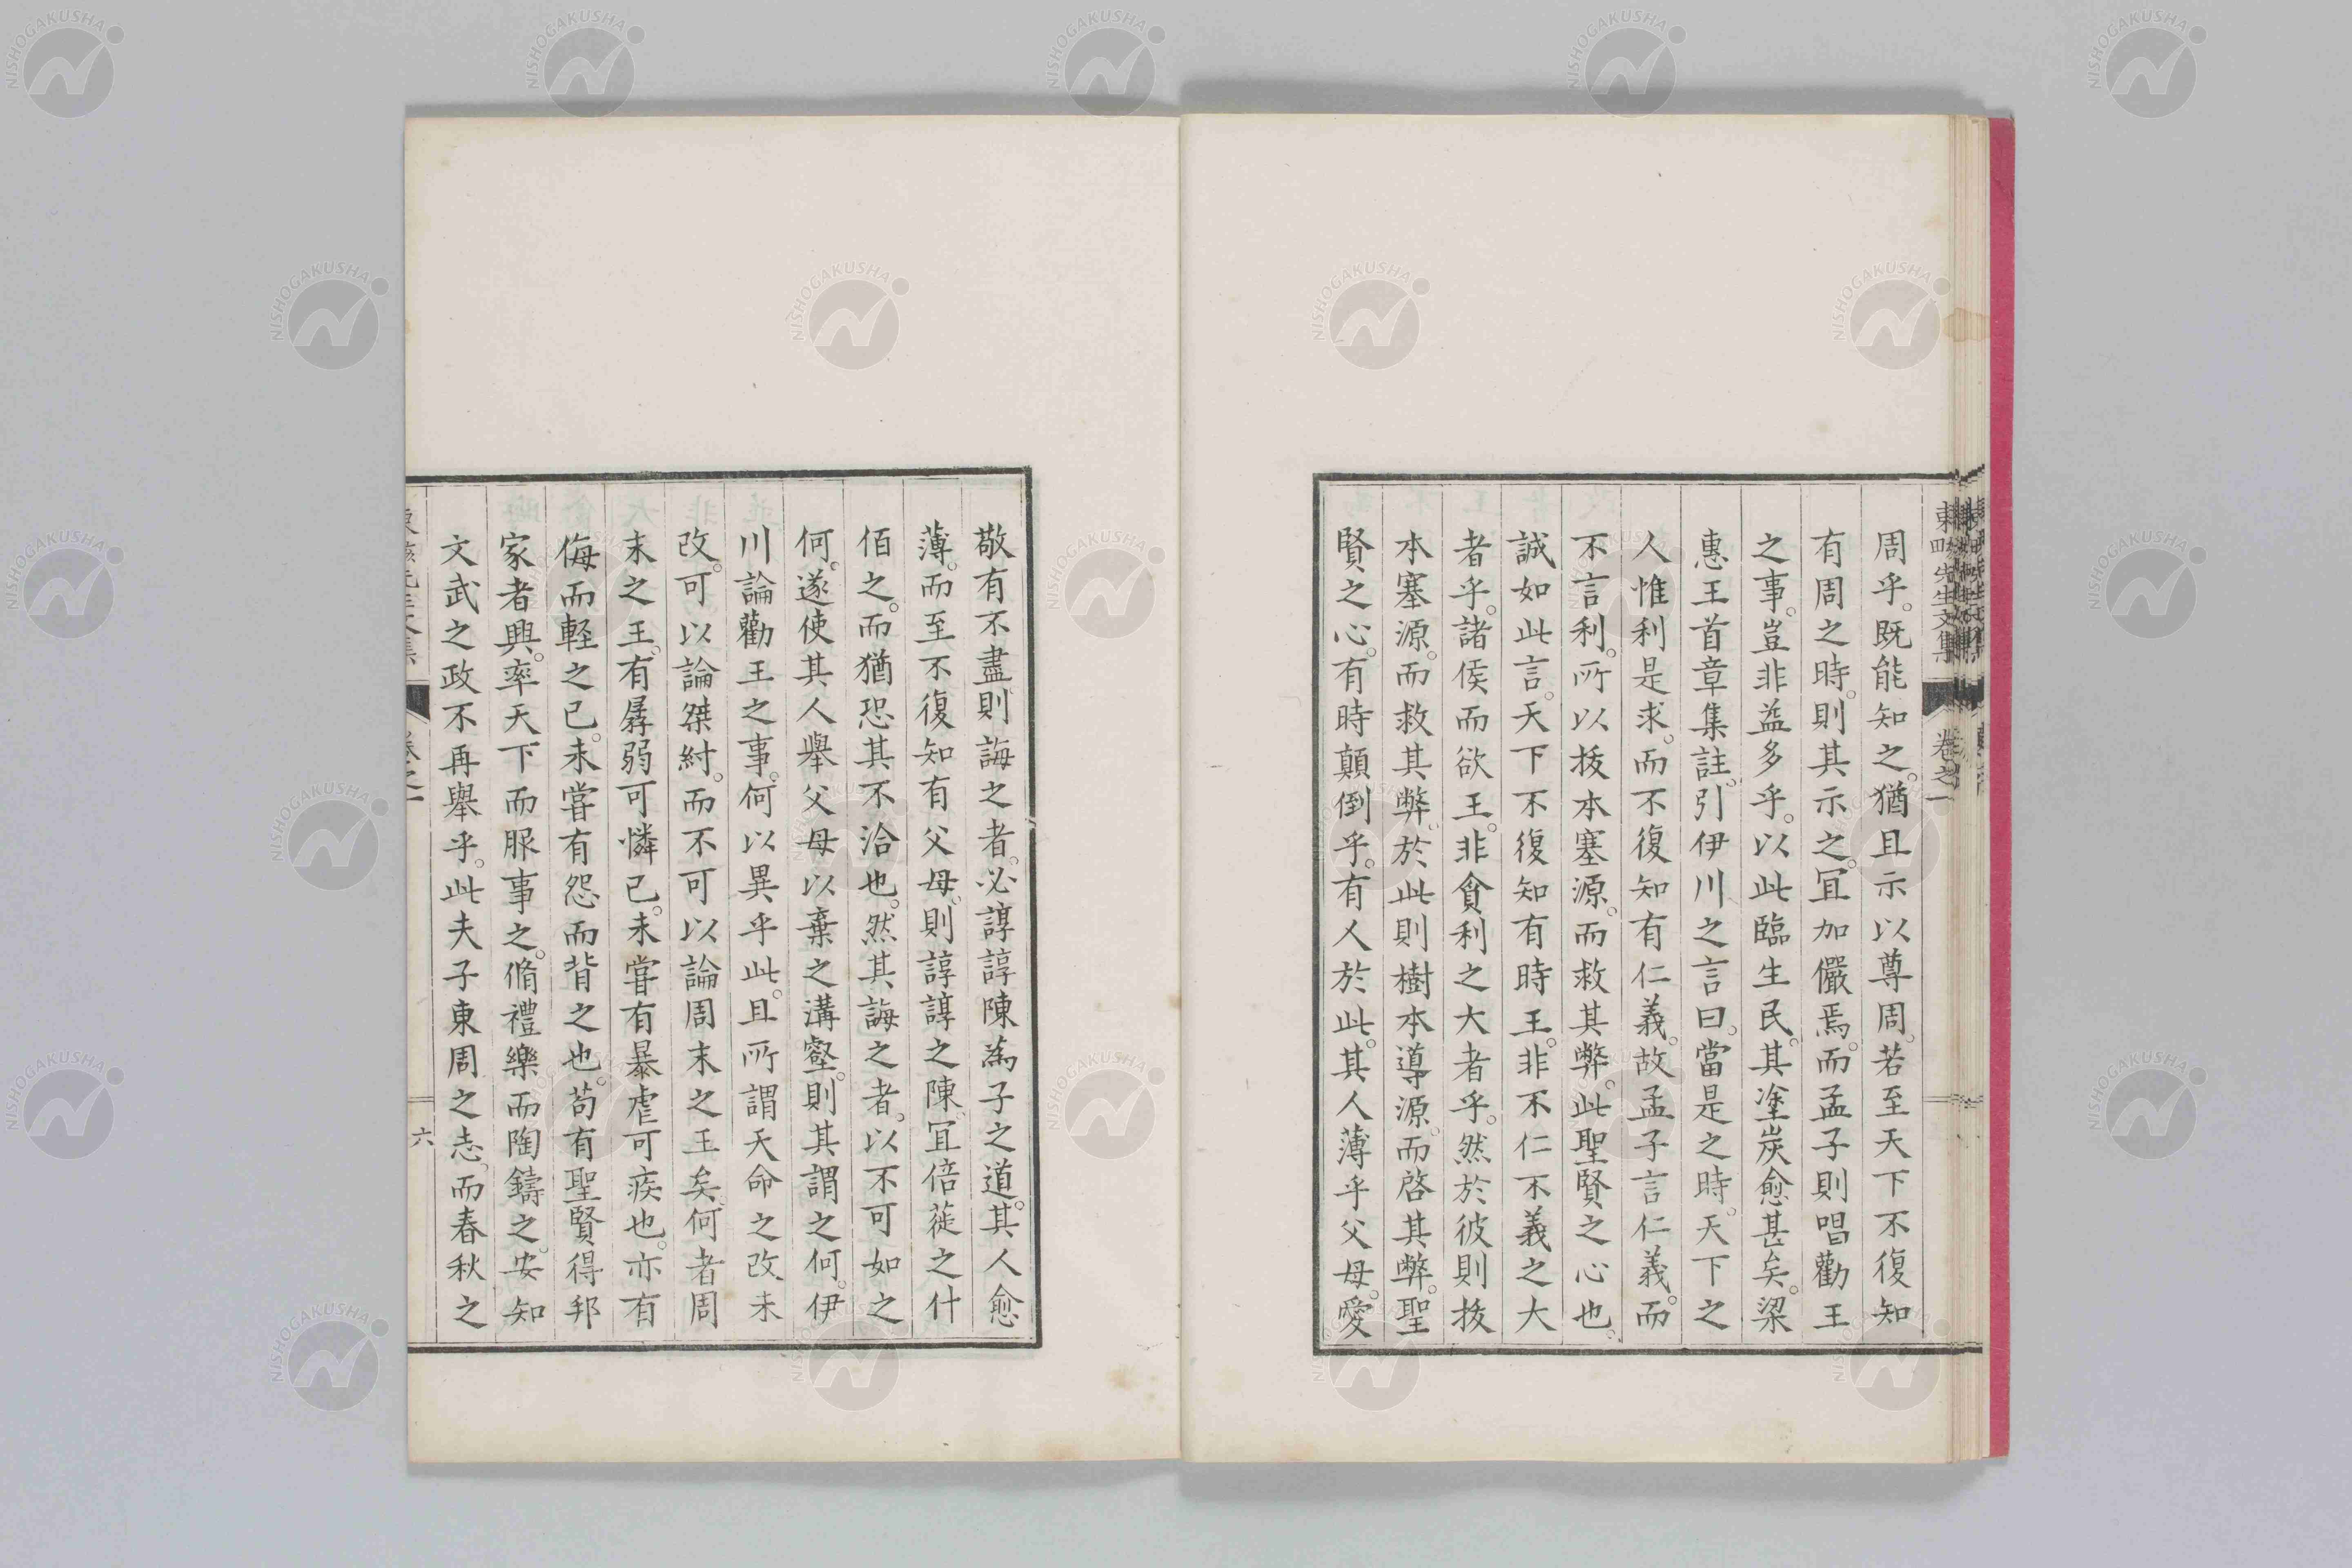 周乎。既能知之。猶且示以尊周。若至天下不復知
有周之時。則其示之。宜加儼焉。而孟子則唱勸王
之事。豈非益多乎。以此臨生民。其塗炭愈甚矣。梁
惠王首章集註。引伊川之言曰。當是之時。天下之
人惟利是求。而不復知有仁義。故孟子言仁義。而
不言利。所以拔本塞源。而救其弊。此聖賢之心也。
誠如此言。天下不復知有時王。非不仁不義之大
者乎。諸侯而欲王。非貪利之大者乎。然於彼則拔
本塞源。而救其弊。於此則樹本導源。而啓其弊。聖
賢之心。有時顛倒乎。有人於此。其人薄乎父母。愛
敬有不盡。則誨之者。必諄諄陳為子之道。其人愈
薄。而至不復知有父母。則諄諄之陳。宜倍蓰之什
佰之。而猶恐其不洽也。然其誨之者。以不可如之
何。遂使其人舉父母以棄之溝壑。則其謂之何。伊
川論勸王之事。何以異乎此。且所謂天命之改未
改。可以論桀紂。而不可以論周末之王矣。何者周
末之王。有孱弱可憐已。未嘗有暴虐可疾也。亦有
侮而輕之已。未嘗有怨而背之也。苟有聖賢得邦
家者興。率天下而服事之。脩禮樂而陶鑄之。安知
文武之政不再舉乎。此夫子東周之志。而春秋之
先生文集
卷之一
六
NISHOGAKUSHA